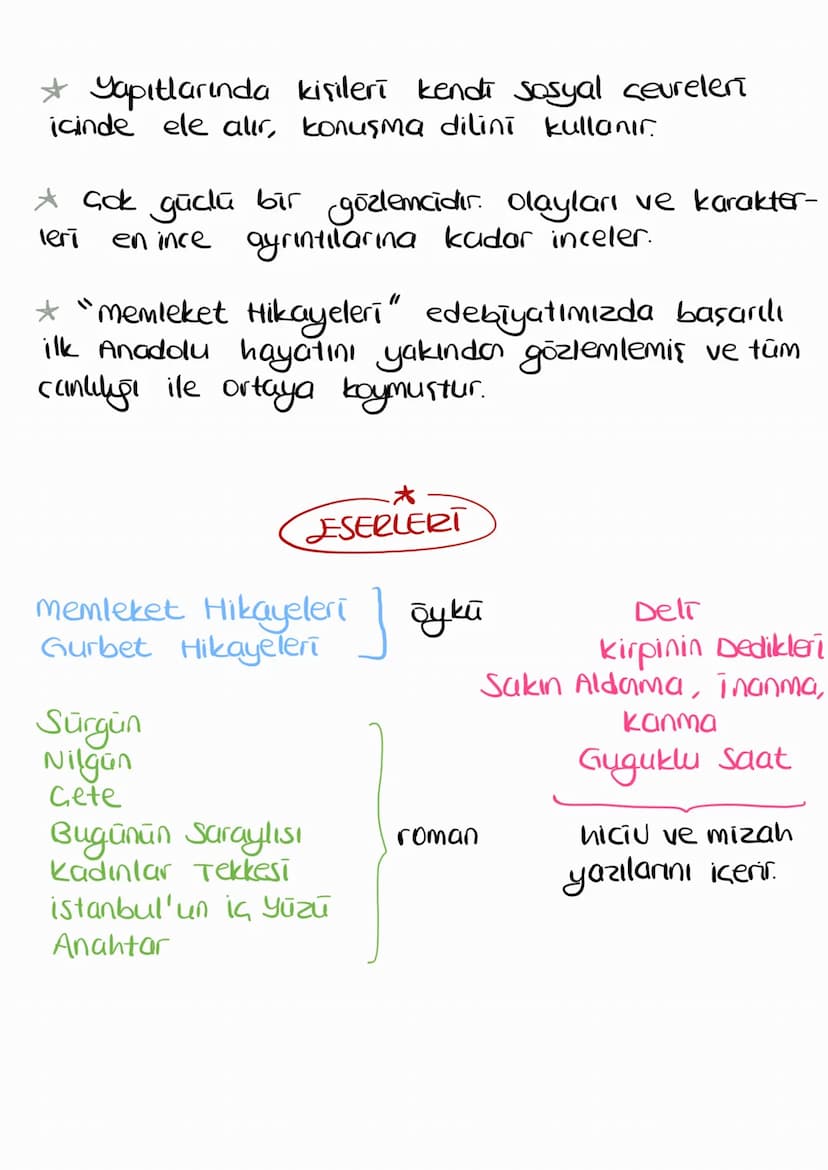 * Yapıtlarında kişileri kendi sosyal çevreleri
içinde ele alır, konuşma dilini kullanır.
* Çok güçlü bir gözlemcidir. Olayları ve karakter-
leri en ince ayrıntılarına kadar inceler.
* "Memleket Hikayeleri" edebiyatımızda başarılı
ilk Anadolu hayatını yakından gözlemlemiş ve tüm
canlılığı ile ortaya koymuştur.
*
ESERLERİ
Memleket Hikayeleri
Gurbet Hikayeleri
öykü
Sürgün
Nilgün
Çete
Bugünün Saraylısı
Kadınlar Tekkesi
İstanbul'un İç Yüzü
Anahtar
roman
Deli
Kirpinin Dedikleri
Sakın Aldama, İnanma,
Kanma
Guguklu Saat
hiciv ve mizah
yazılarını içerir.